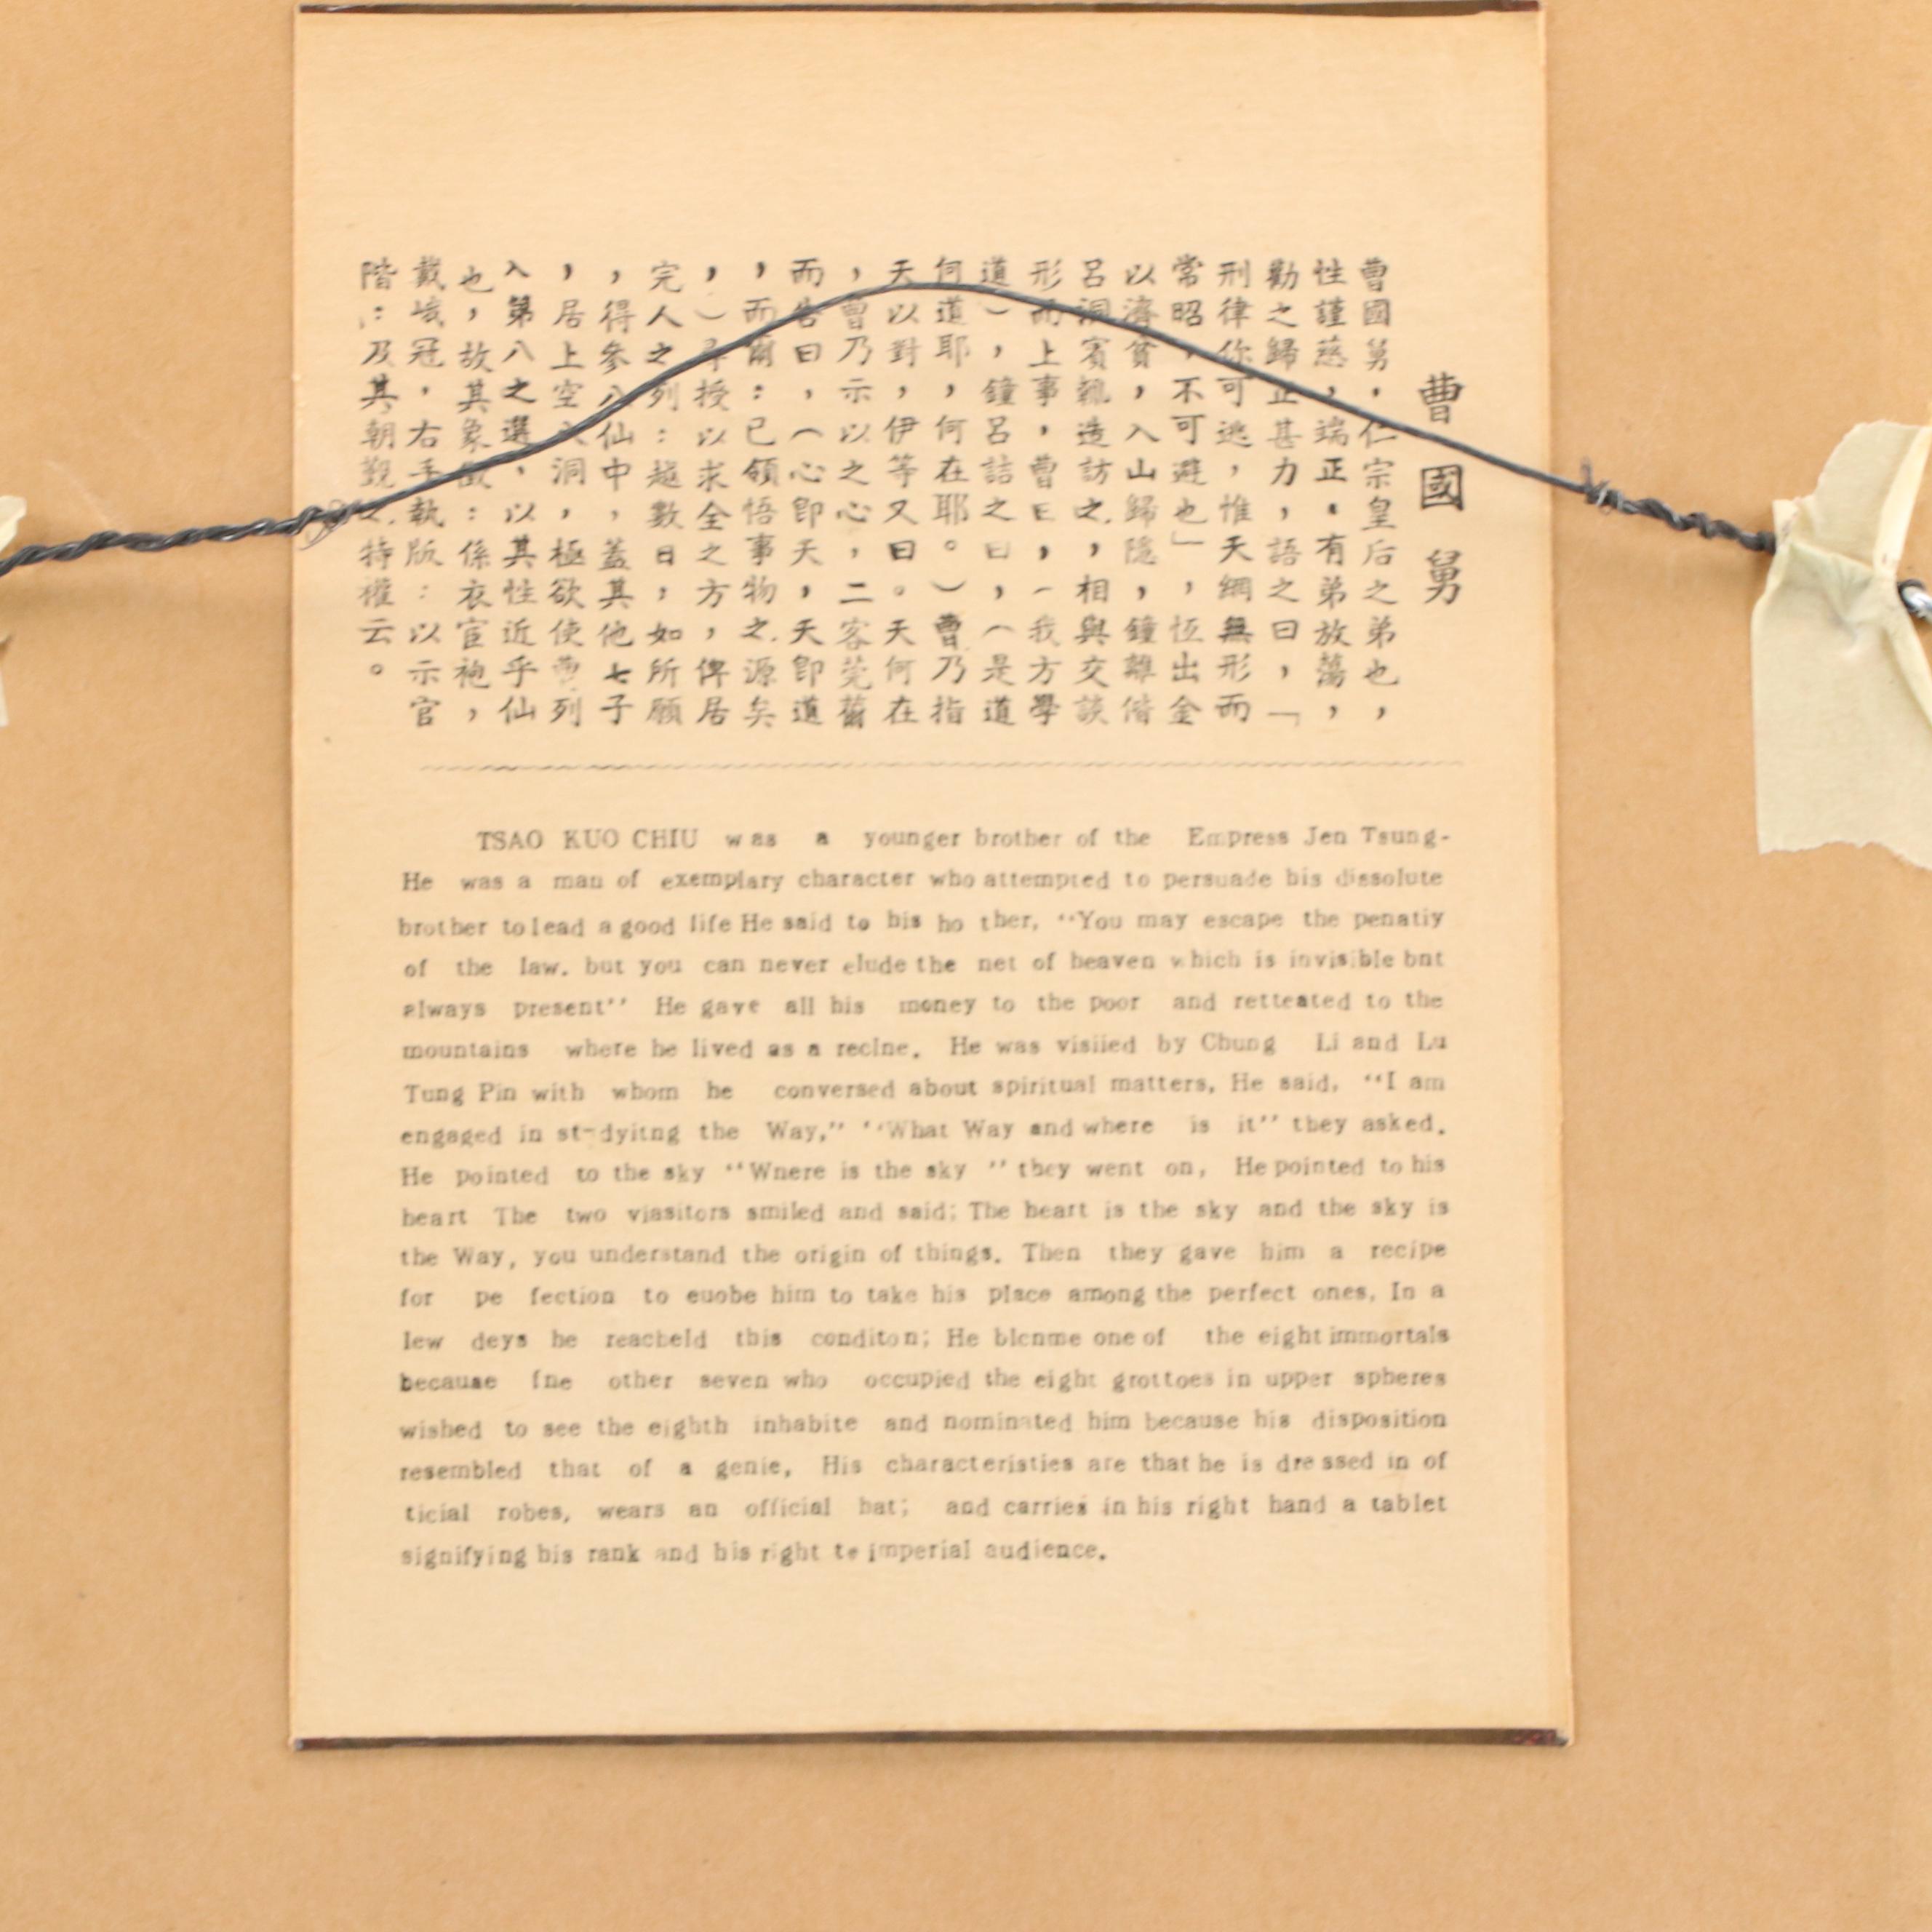 曹國舅
曹國舅，仁宗皇后之弟也，
性謹慈，端正．有弟放蕩，
勸之歸正甚力，語之曰，「
刑律你可逃，惟天網無形而
常昭，不可避也」，恆出金
以濟貧，入山歸隱，鐘離偕
呂洞賓輒造訪之，相與交談
形而上事，曹曰，（我方學
道），鐘呂詰之曰，（是道
何道耶，何在耶。）曹乃指
天以對，伊等又曰。天何在
，曹乃示以之心，二客莞薾
而告曰，（心即天，天即道
，而爾：已領悟事物之源矣
，）尋授以求全之方，俾居
完人之列：越數日，如所願
，得參八仙中，蓋其他七子
，居上空八洞，極欲使曹列
入第八之選，以其性近乎仙
也，故其象徵：係衣宦袍，
戴峨冠，右手執版：以示官
階：及其朝覲之特權云。
TSAO KUO CHIU was a younger brother of the Empress Jen Tsung-
He was a man of exemplary character who attempted to persuade his dissolute
brother to lead a good life He said to his ho ther, "You may escape the penatiy
of the law. but you can never elude the net of heaven which is invisible bnt
always present" He gave all his money to the poor and retteated to the
mountains where he lived as a reclne. He was visiied by Chung Li and Lu
Tung Pin with whom he conversed about spiritual matters, He said, "I am
engaged in st-dyitng the Way," "What Way and where is it" they asked.
He pointed to the sky "Wnere is the sky " they went on, He pointed to his
heart The two viasitors smiled and said; The heart is the sky and the sky is
the Way, you understand the origin of things. Then they gave him a recipe
for pe fection to euobe him to take his place among the perfect ones, In a
lew deys he reacheld this conditon; He blcnme one of the eight immortals
because fne other seven who occupied the eight grottoes in upper spheres
wished to see the eighth inhabite and nominated him because his disposition
resembled that of a genie, His characteristies are that he is dressed in of
ticial robes, wears an official hat; and carries in his right hand a tablet
signifying his rank and his right te imperial audience.